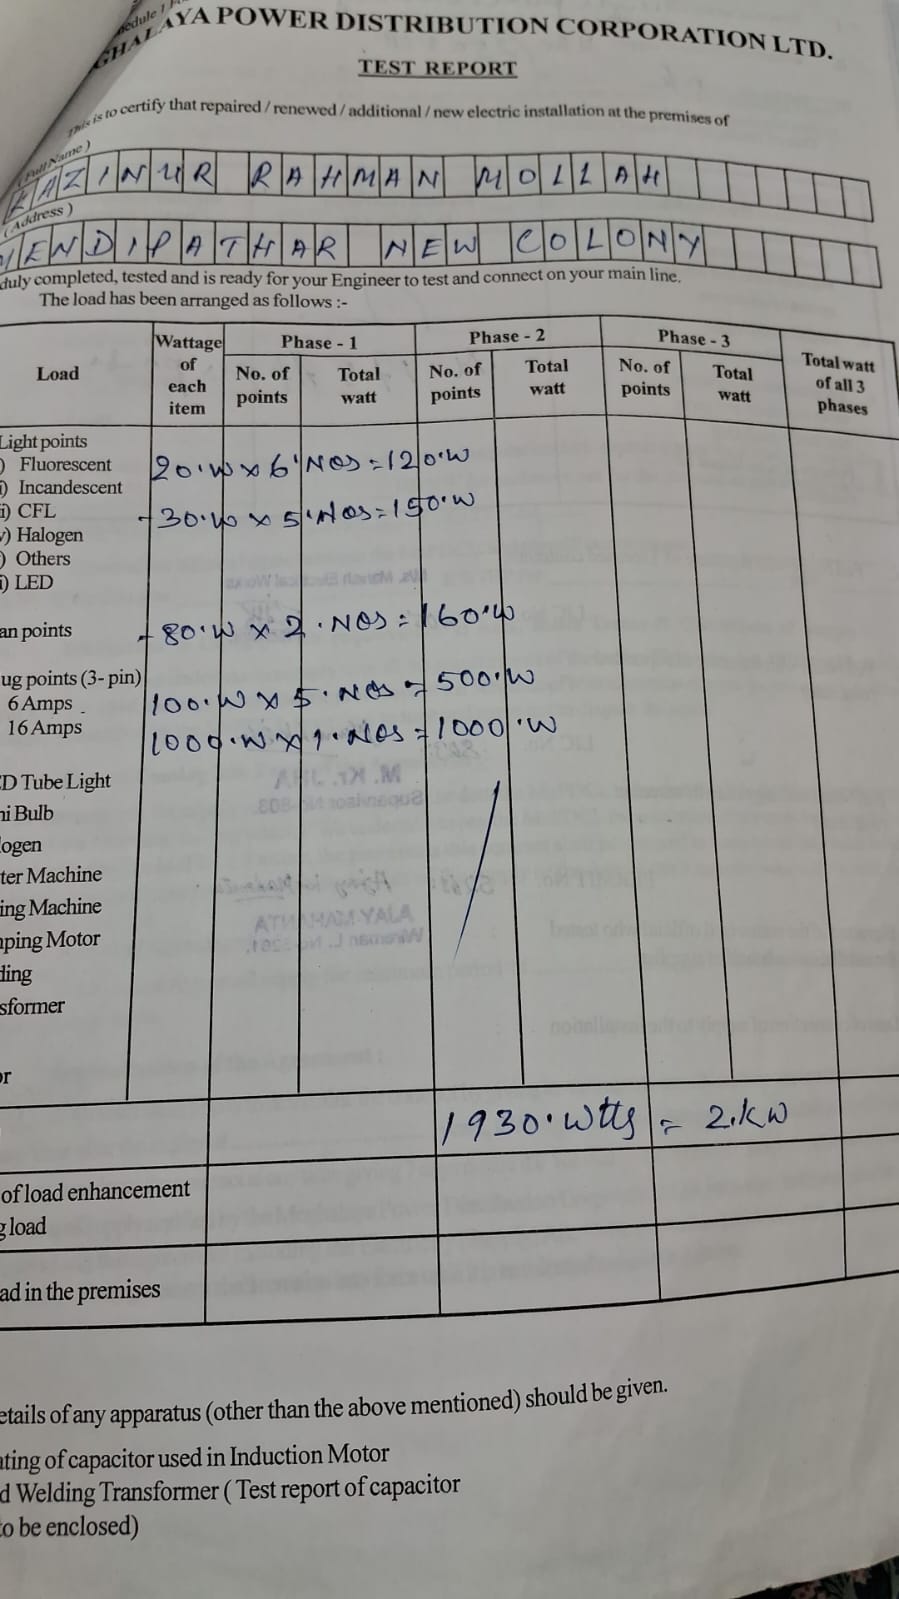 nedule 1
GHALAYA POWER DISTRIBUTION CORPORATION LTD.
TEST REPORT
This is to certify that repaired / renewed / additional / new electric installation at the premises of
(Full Name)
KAZINUR RAHMAN MOLLAH
(Address)
MENDIPATHAR NEW COLONY
duly completed, tested and is ready for your Engineer to test and connect on your main line.
The load has been arranged as follows :-
Load
Wattage of each item
Phase - 1
Phase - 2
Phase - 3
Total watt of all 3 phases
No. of points
Total watt
No. of points
Total watt
No. of points
Total watt
Light points
) Fluorescent 20.W x 6 NOS = 120.W
i) Incandescent
i) CFL - 30.W x 5 NOS = 150.W
v) Halogen
) Others
i) LED
an points - 80.W x 2. NOS = 160.W
ug points (3- pin)
6 Amps 100.W x 5. NOS = 500.W
16 Amps 1000.W x 1. NOS = 1000.W
ED Tube Light
ni Bulb
logen
ter Machine
ing Machine
nping Motor
ding
sformer
or
1930. Wtts = 2.kw
of load enhancement
g load
ad in the premises
etails of any apparatus (other than the above mentioned) should be given.
ating of capacitor used in Induction Motor
d Welding Transformer ( Test report of capacitor
to be enclosed)